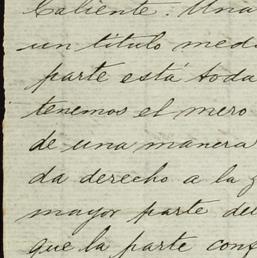 Caliente. Una
un título med
parte está toda
tenemos el mero
de una manera
da derecho a la
mayor parte de
que la parte con